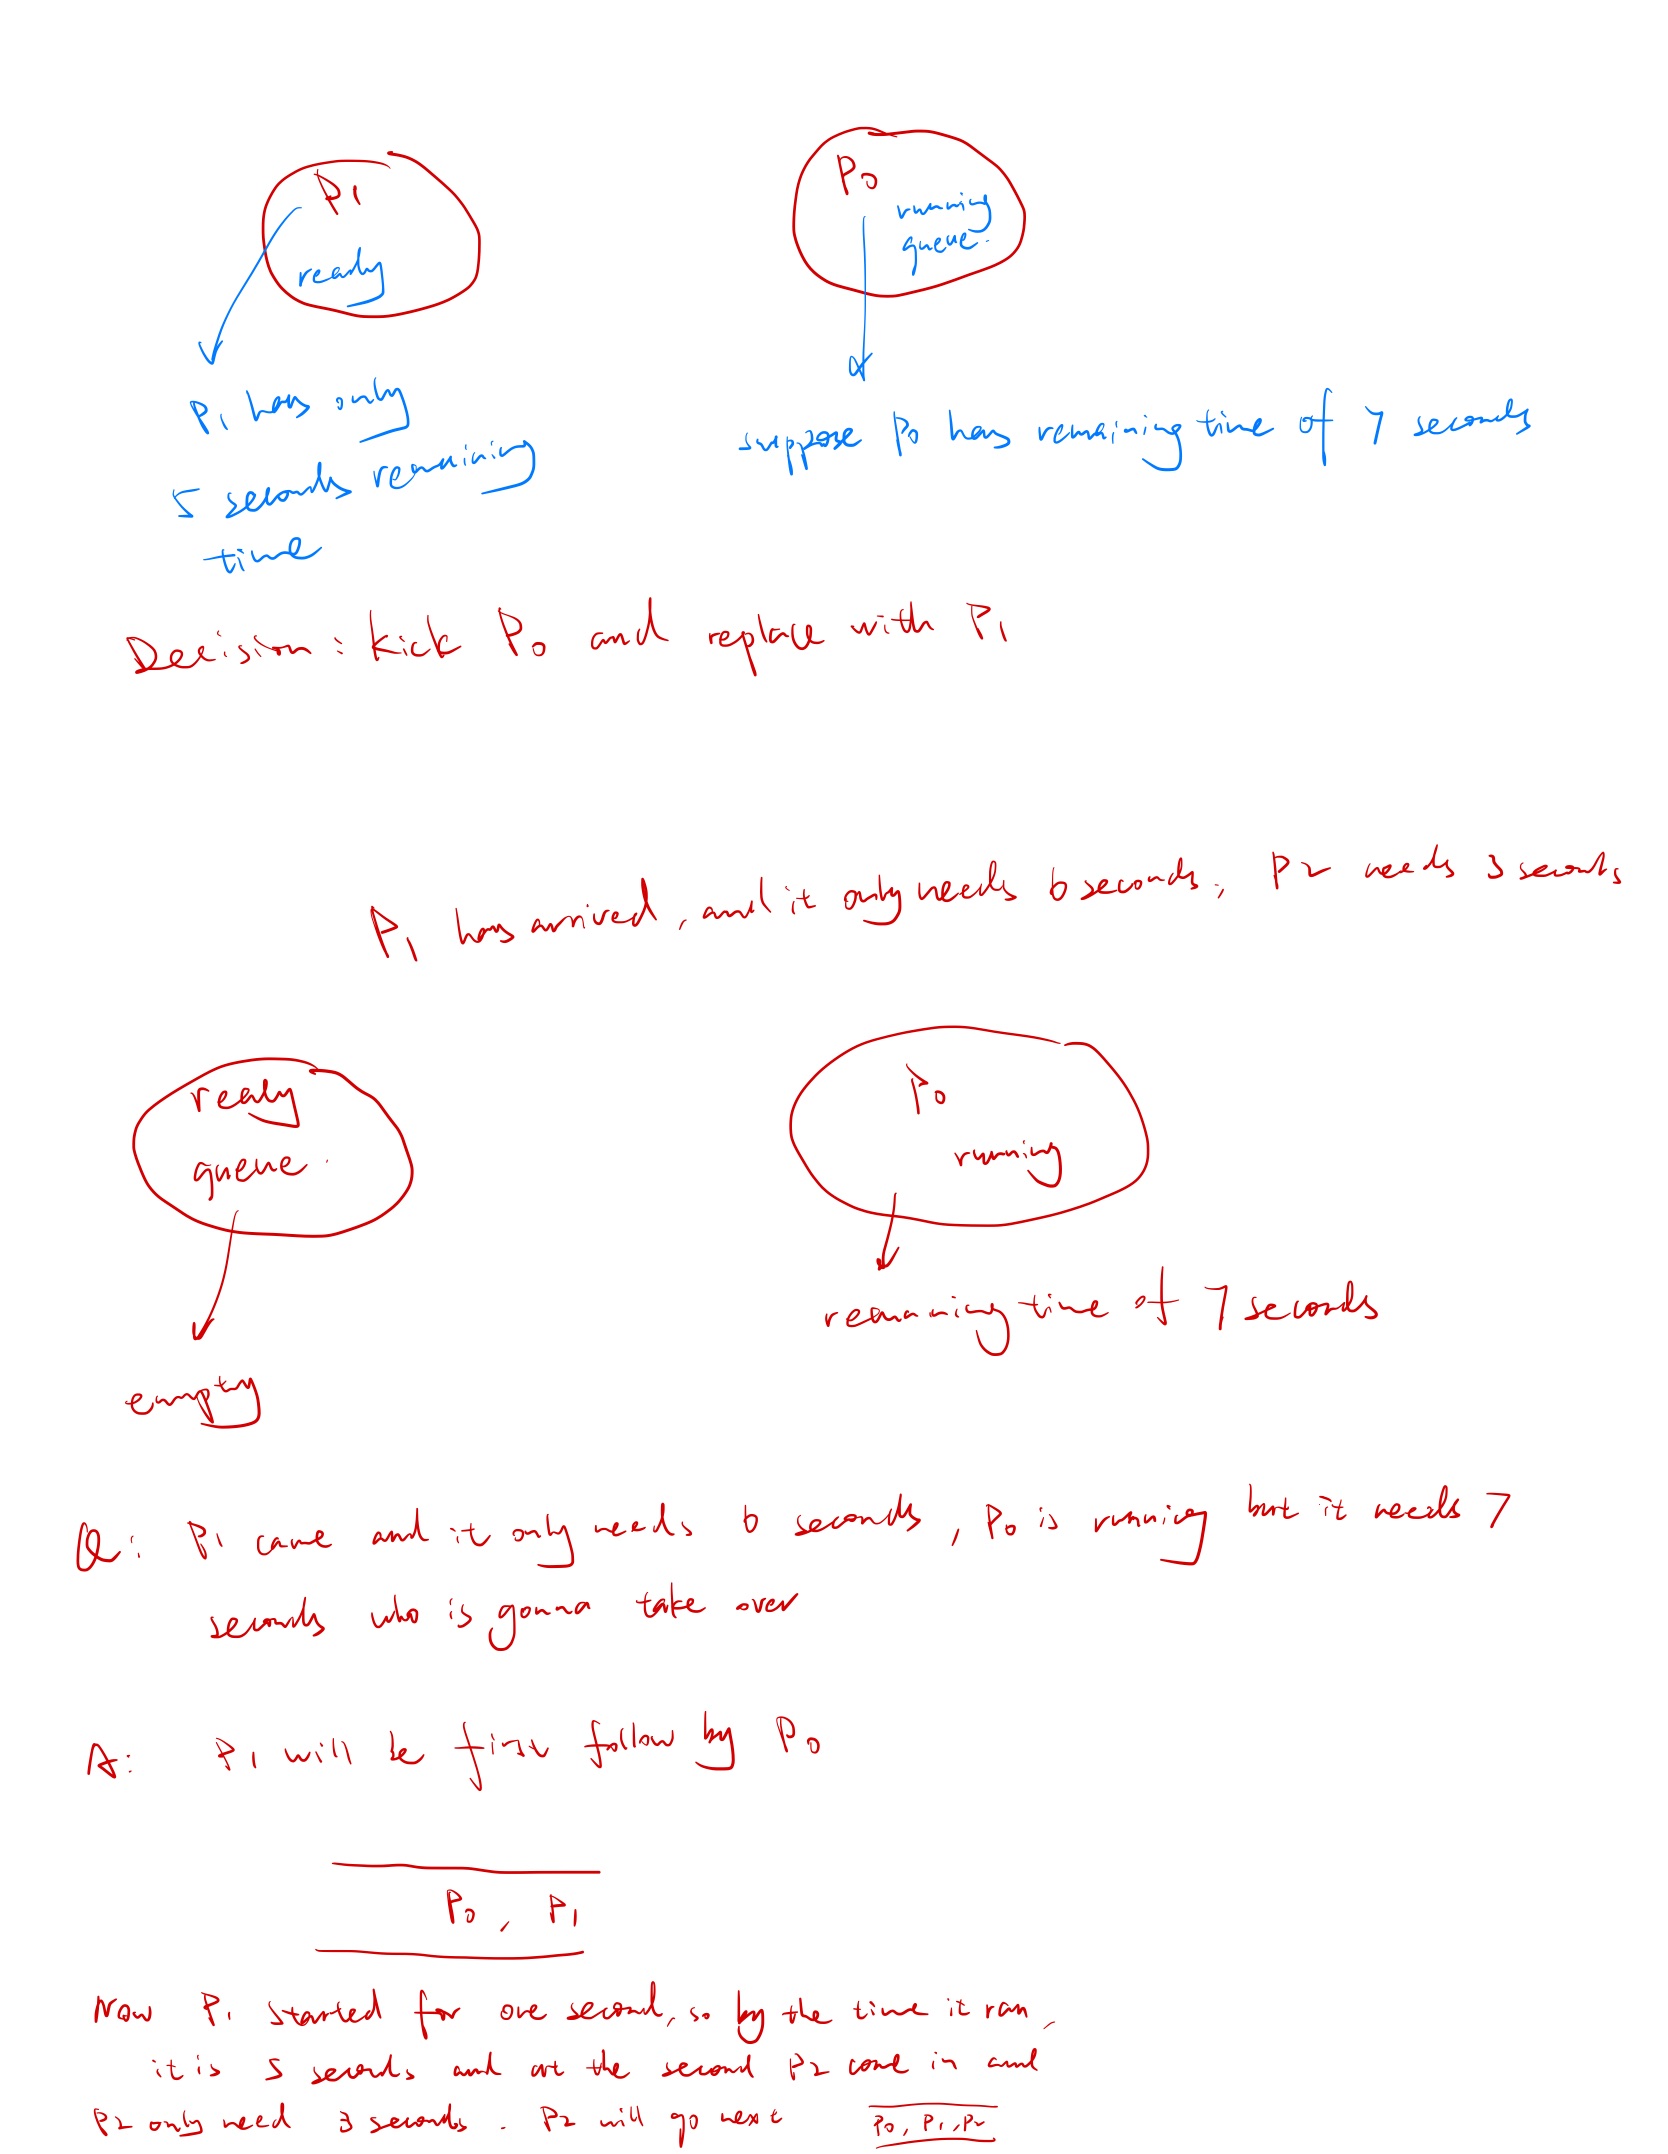 P1
ready
P0
running
queue.
P1 has only
5 seconds remaining
time
suppose P0 has remaining time of 7 seconds
Decision: kick P0 and replace with P1
P1 has arrived, and it only needs 6 seconds, P2 needs 3 seconds
ready
queue.
empty
P0
running
remaining time of 7 seconds
Q: P1 came and it only needs 6 seconds, P0 is running but it needs 7
seconds who is gonna take over
A: P1 will be first follow by P0
P0, P1
Now P1 started for one second, so by the time it ran,
it is 5 seconds and at the second P2 come in and
P2 only need 3 seconds. P2 will go next P0, P1, P2